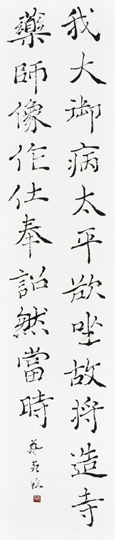 我大御病太平欲坐故将造寺
藥師像作仕奉詔然當時